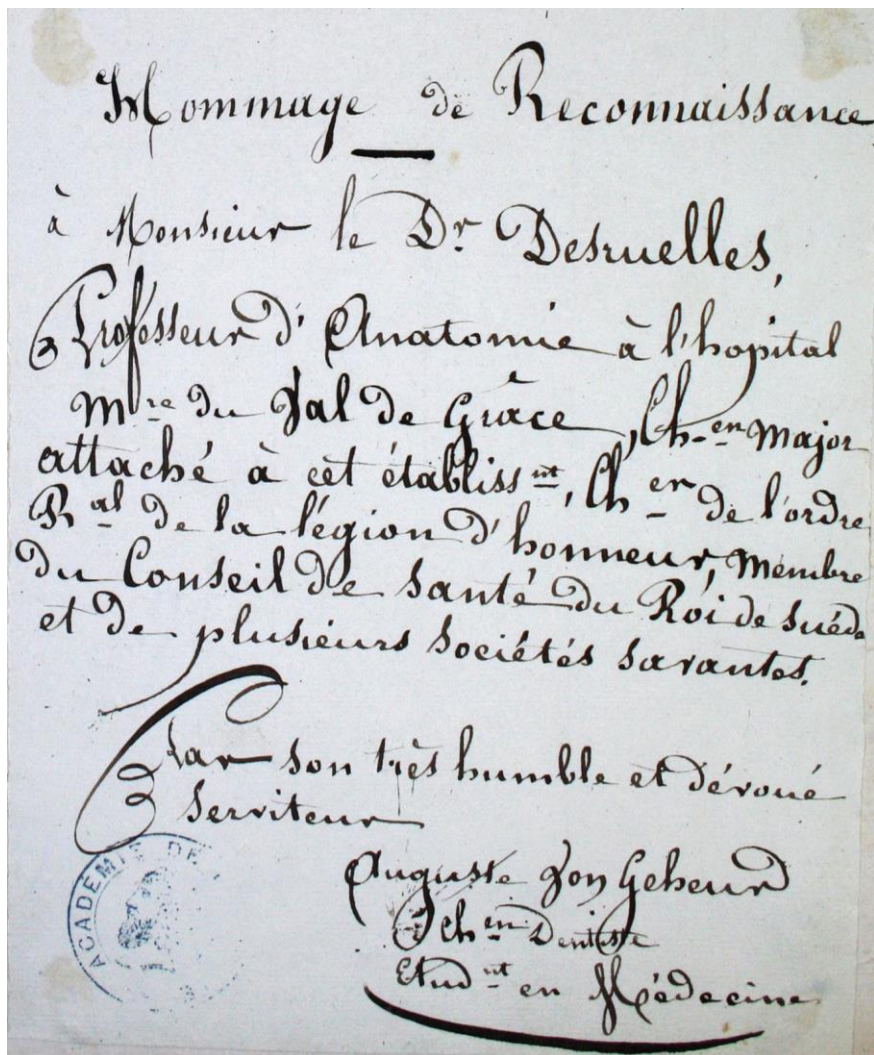 Hommage de Reconnaissance
à Monsieur le Dr Desruelles,
Professeur d'Anatomie à l'hopital
Mre du Val de Grâce, Ch-en Major
attaché à cet établissnt, Cher de l'ordre
Ral de la légion d'honneur, Membre
du Conseil de santé du Roi de Suéde
et de plusieurs sociétés savantes.
Par son très humble et dévoué
Serviteur
Auguste Von Geheur
Chen Dentiste
Etudnt en Médecine
ACADÉMIE DE